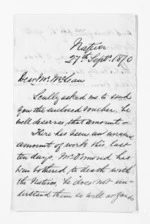 Napier
27th Sept. 1870
Dear Mr. McLean
Scully asked me to send
you the enclosed voucher. he
well deserves that amount -
There has been an
amount of work this last
ten days. Mr Ormond has
been bothered to death with
the Natives. he does not un-
derstand them as well as